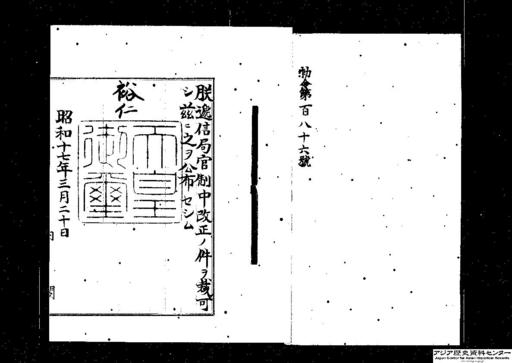 勅令第百八十六號
朕遞信局官制中改正ノ件ヲ裁可
シ茲ニ之ヲ公布セシム
裕仁
天皇
御璽
昭和十七年三月二十日
アジア歴史資料センター
Japan Center for Asian Historical Records